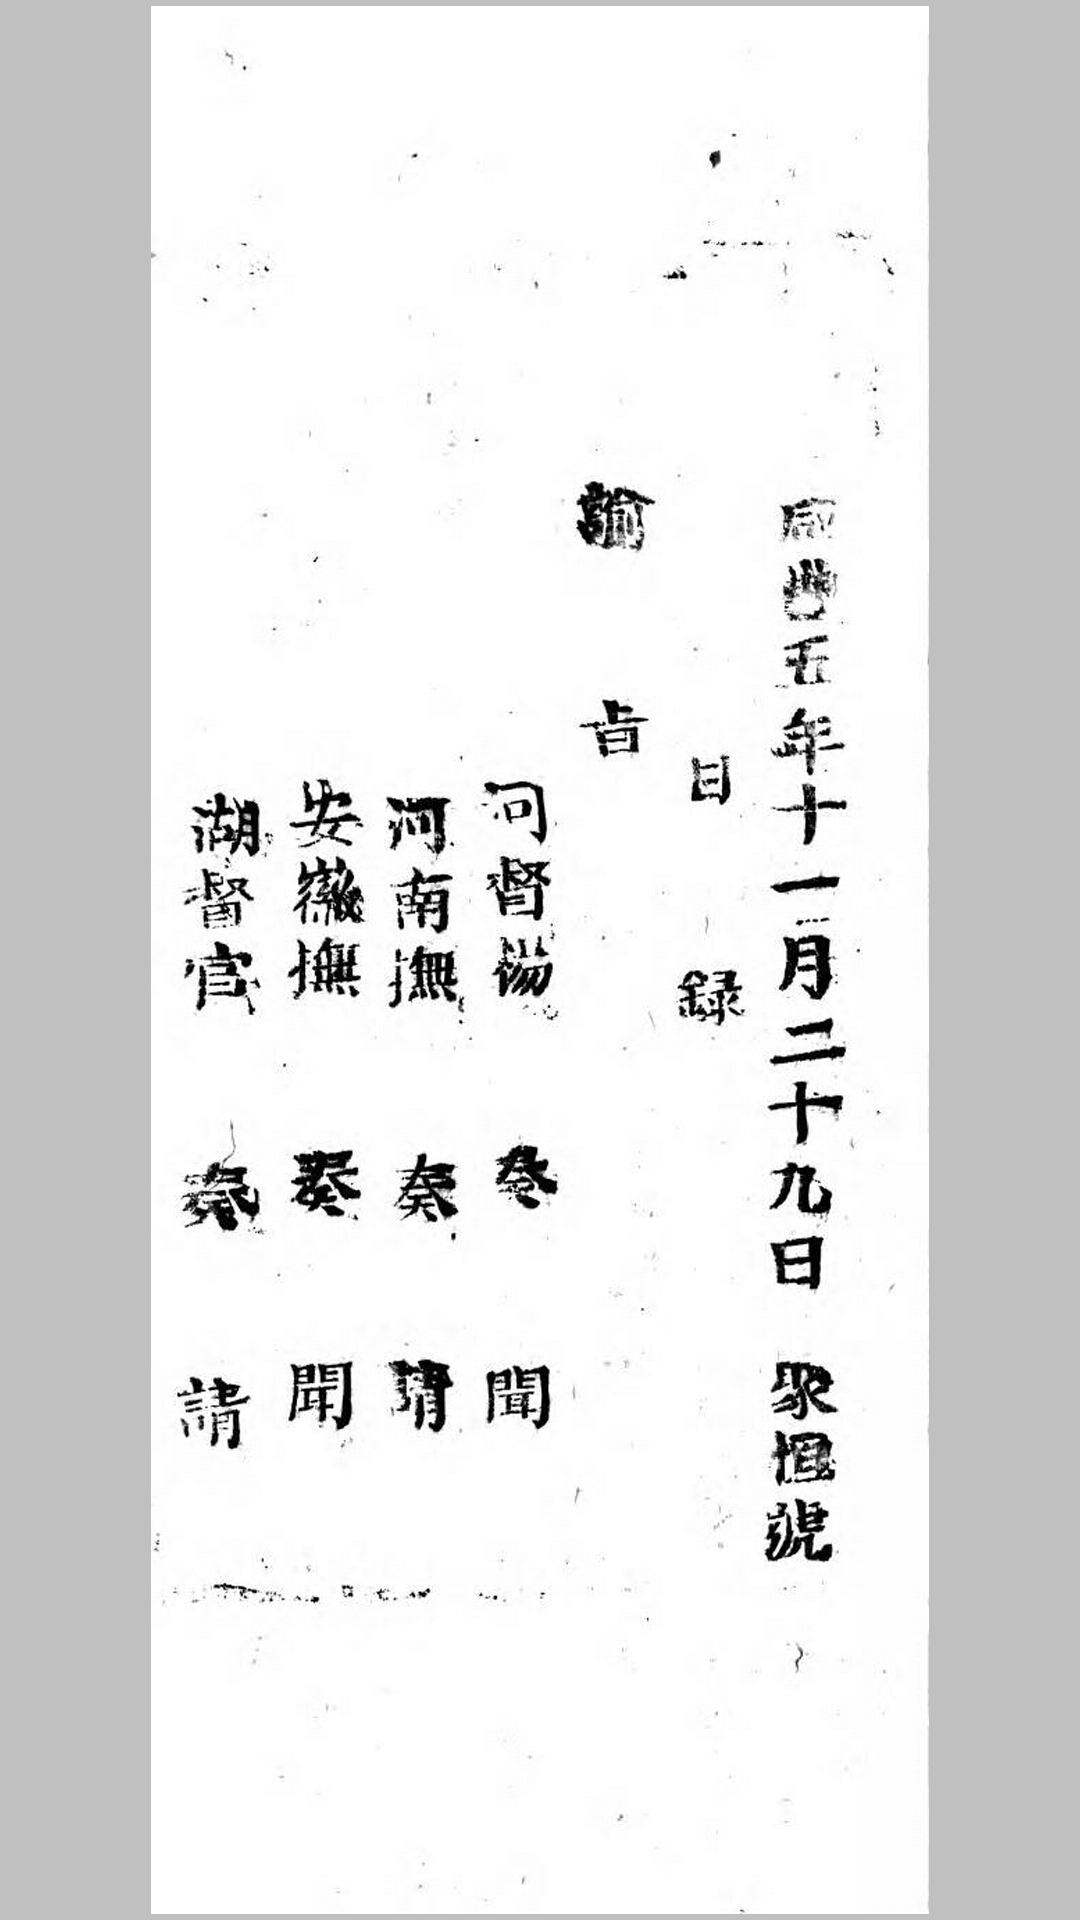 咸豐五年十一月二十九日 聚恒號
目錄
諭旨
河督楊 奏 聞
河南撫 奏 請
安徽撫 奏 聞
湖督官 奏 請